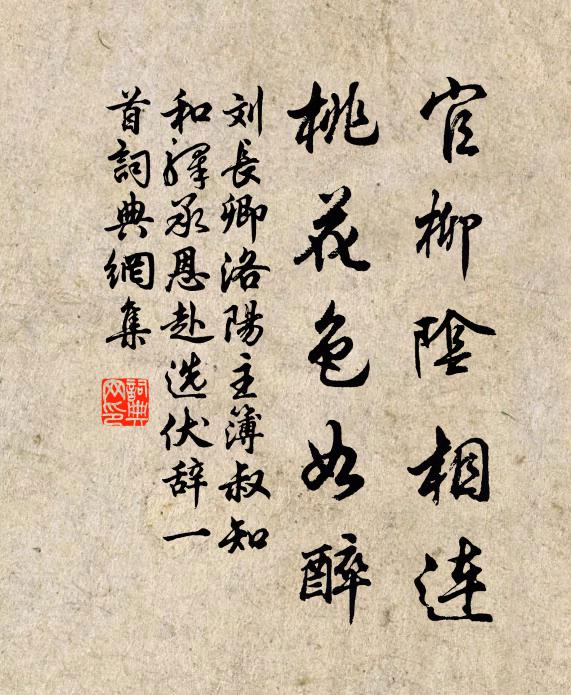 官柳陰相連
桃花色如醉
刘長卿洛陽主簿叔知
和驛承恩赴选伏辞一
首詞典網集
詞典
网印